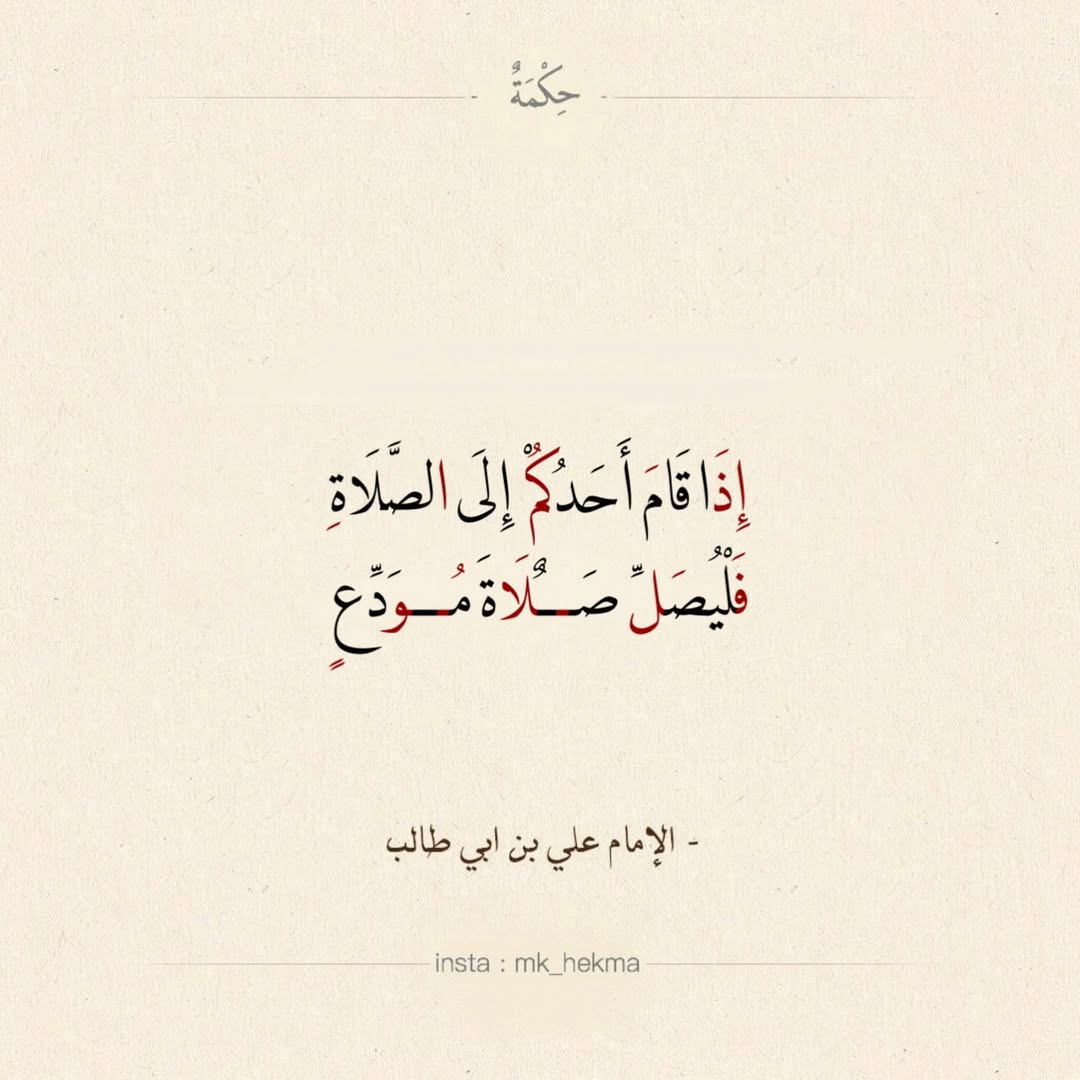 حِكْمَةٌ
إِذَا قَامَ أَحَدُكُمْ إِلَى الصَّلَاةِ
فَلْيُصَلِّ صَلَاةَ مُوَدِّعٍ
- الإمام علي بن ابي طالب
insta : mk_hekma